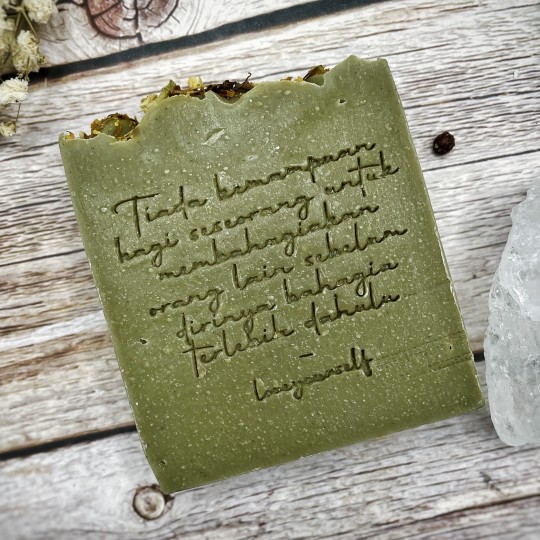 Tiada kemampuan
bagi seseorang untuk
membahagiakan
orang lain sebelum
dirinya bahagia
terlebih dahulu
-
loveyourself